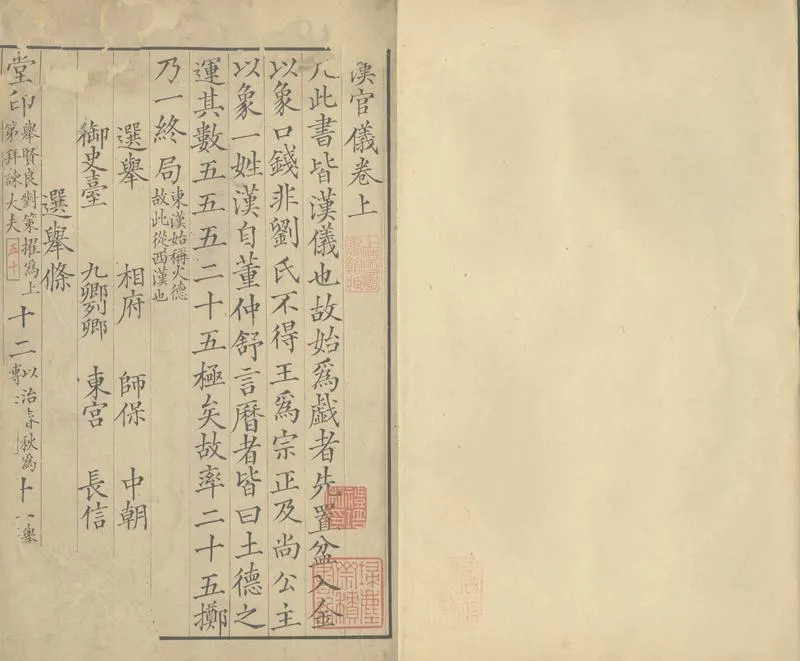 漢官儀卷上
凡此書皆漢儀也故始爲戲者先置盆入金
以象口錢非劉氏不得王爲宗正及尚公主
以象一姓漢自董仲舒言曆者皆曰土德之
運其數五五五二十五極矣故率二十五擲
乃一終局東漢始稱火德故此從西漢也
選舉 相府 師保 中朝
御史臺 九卿列卿 東宮 長信
選舉條
堂印舉賢良對策擢爲上第拜諫大夫五十 十二以治春秋爲博 十一舉